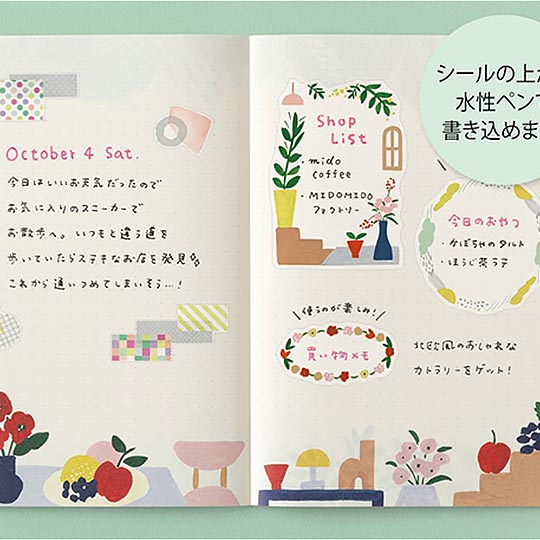 October 4 Sat.
今日はいいお天気だったので
お気に入りのスニーカーで
お散歩へ。いつもと違う道を
歩いていたらステキなお店を発見
これから通いつめてしまいそう…!
Shop
List
・mido
coffee
・MIDOMIDO
ファクトリー
シールの上か
水性ペンで
書き込めま
今日のおやつ
・かぼちゃのタルト
・ほうじ茶ラテ
\使うのが楽しみ!/
買い物メモ
北欧風のおしゃれな
カトラリーをゲット!